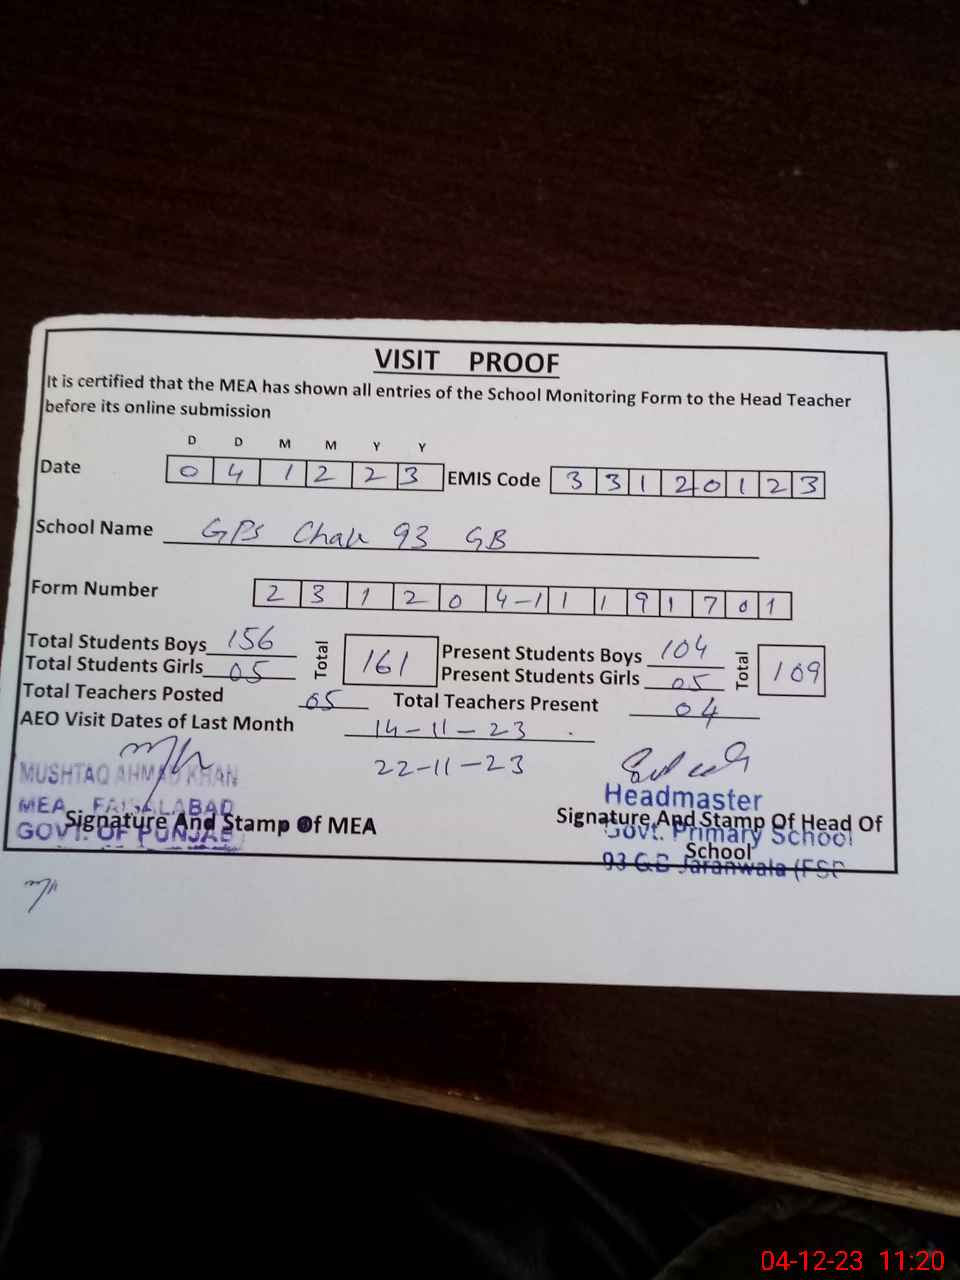 VISIT PROOF
It is certified that the MEA has shown all entries of the School Monitoring Form to the Head Teacher
before its online submission
D D M M Y Y
Date 0 4 1 2 2 3 EMIS Code 3 3 1 2 0 1 2 3
School Name GPS Chak 93 GB
Form Number 2 3 1 2 0 4-1 1 1 9 1 7 0 1
Total Students Boys 156 Total 161 Present Students Boys 104 Total 109
Total Students Girls 05 Present Students Girls 05
Total Teachers Posted 05 Total Teachers Present 04
AEO Visit Dates of Last Month 14-11-23
22-11-23
MUSHTAQ AHMAD KHAN
MEA FAISALABAD
GOVT. OF PUNJAB
Signature And Stamp Of MEA
Headmaster
Govt. Primary School
93 GB Jaranwala (FSD
Signature And Stamp Of Head Of
School
04-12-23 11:20